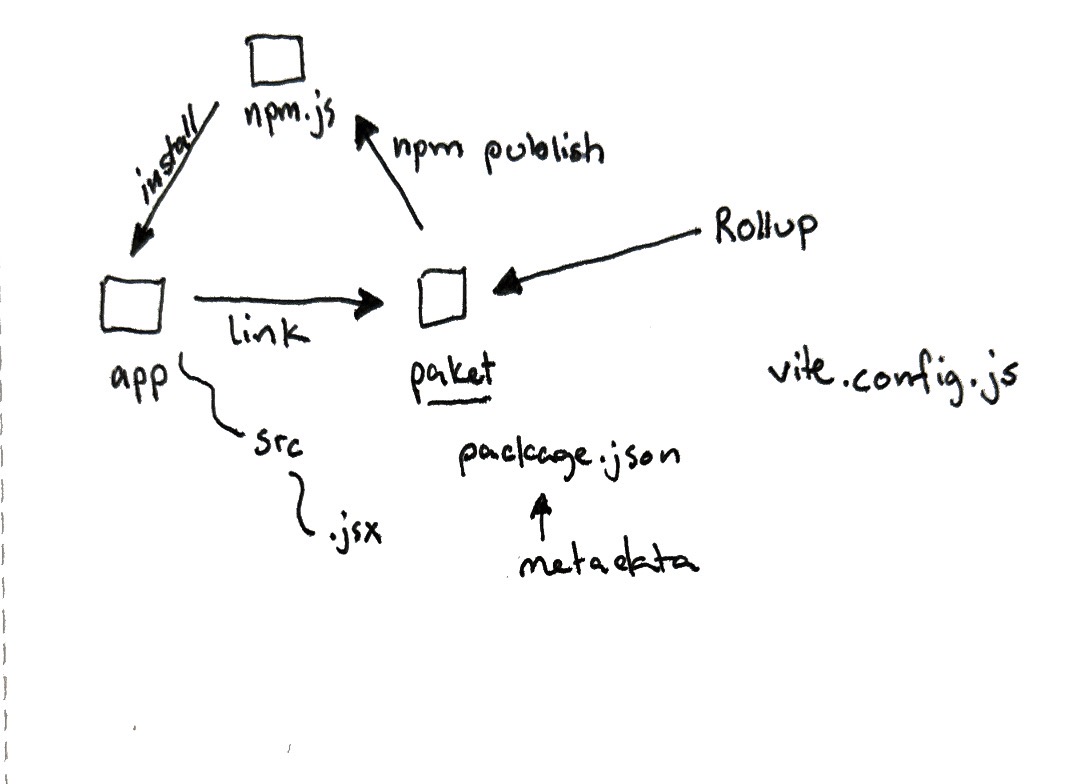 npm.js
install
npm publish
Rollup
link
app
paket
vite.config.js
src
package.json
.jsx
metadata